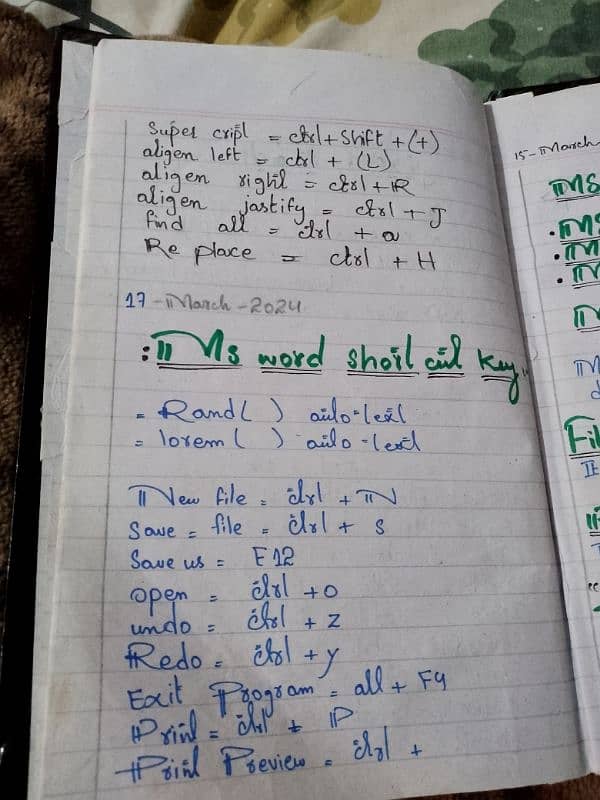 Super cript = ctrl + Shift + (+)
aligen left = ctrl + (L)
aligen right = ctrl + R
aligen jastify = ctrl + J
find all = ctrl + a
Re place = ctrl + H
17 - March - 2024
: Ms word short cut key:
= Rand ( ) auto - text
= lorem ( ) auto - text
New file = ctrl + N
Save = file = ctrl + s
Save us = F12
open = ctrl + o
undo = ctrl + z
Redo = ctrl + y
Exit Program = alt + F4
Print = ctrl + P
Print Preview = ctrl +
15 - March
MS
• MS
• M
• M
M
Fil